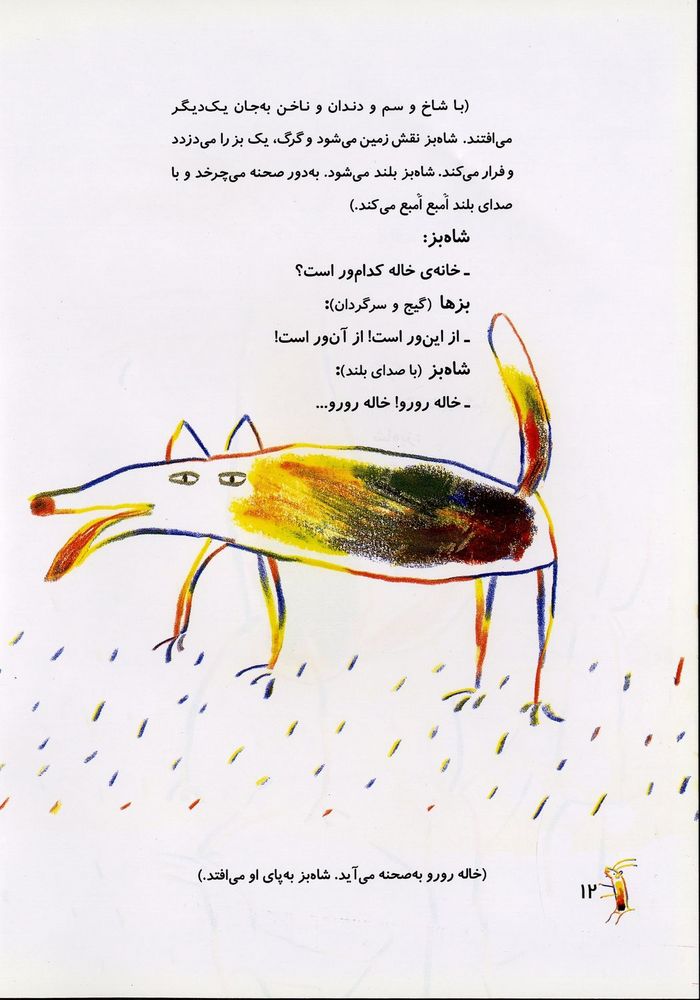 (با شاخ و سم و دندان و ناخن به‌جان یک‌دیگر
می‌افتند. شاه‌بز نقش زمین می‌شود و گرگ، یک بز را می‌دزدد
و فرار می‌کند. شاه‌بز بلند می‌شود. به‌دور صحنه می‌چرخد و با
صدای بلند اُمبع اُمبع می‌کند.)
شاه‌بز:
ـ خانه‌ی خاله کدام‌ور است؟
بزها (گیج و سرگردان):
ـ از این‌ور است! از آن‌ور است!
شاه‌بز (با صدای بلند):
ـ خاله رورو! خاله رورو...
(خاله رورو به‌صحنه می‌آید. شاه‌بز به‌پای او می‌افتد.)
۱۲